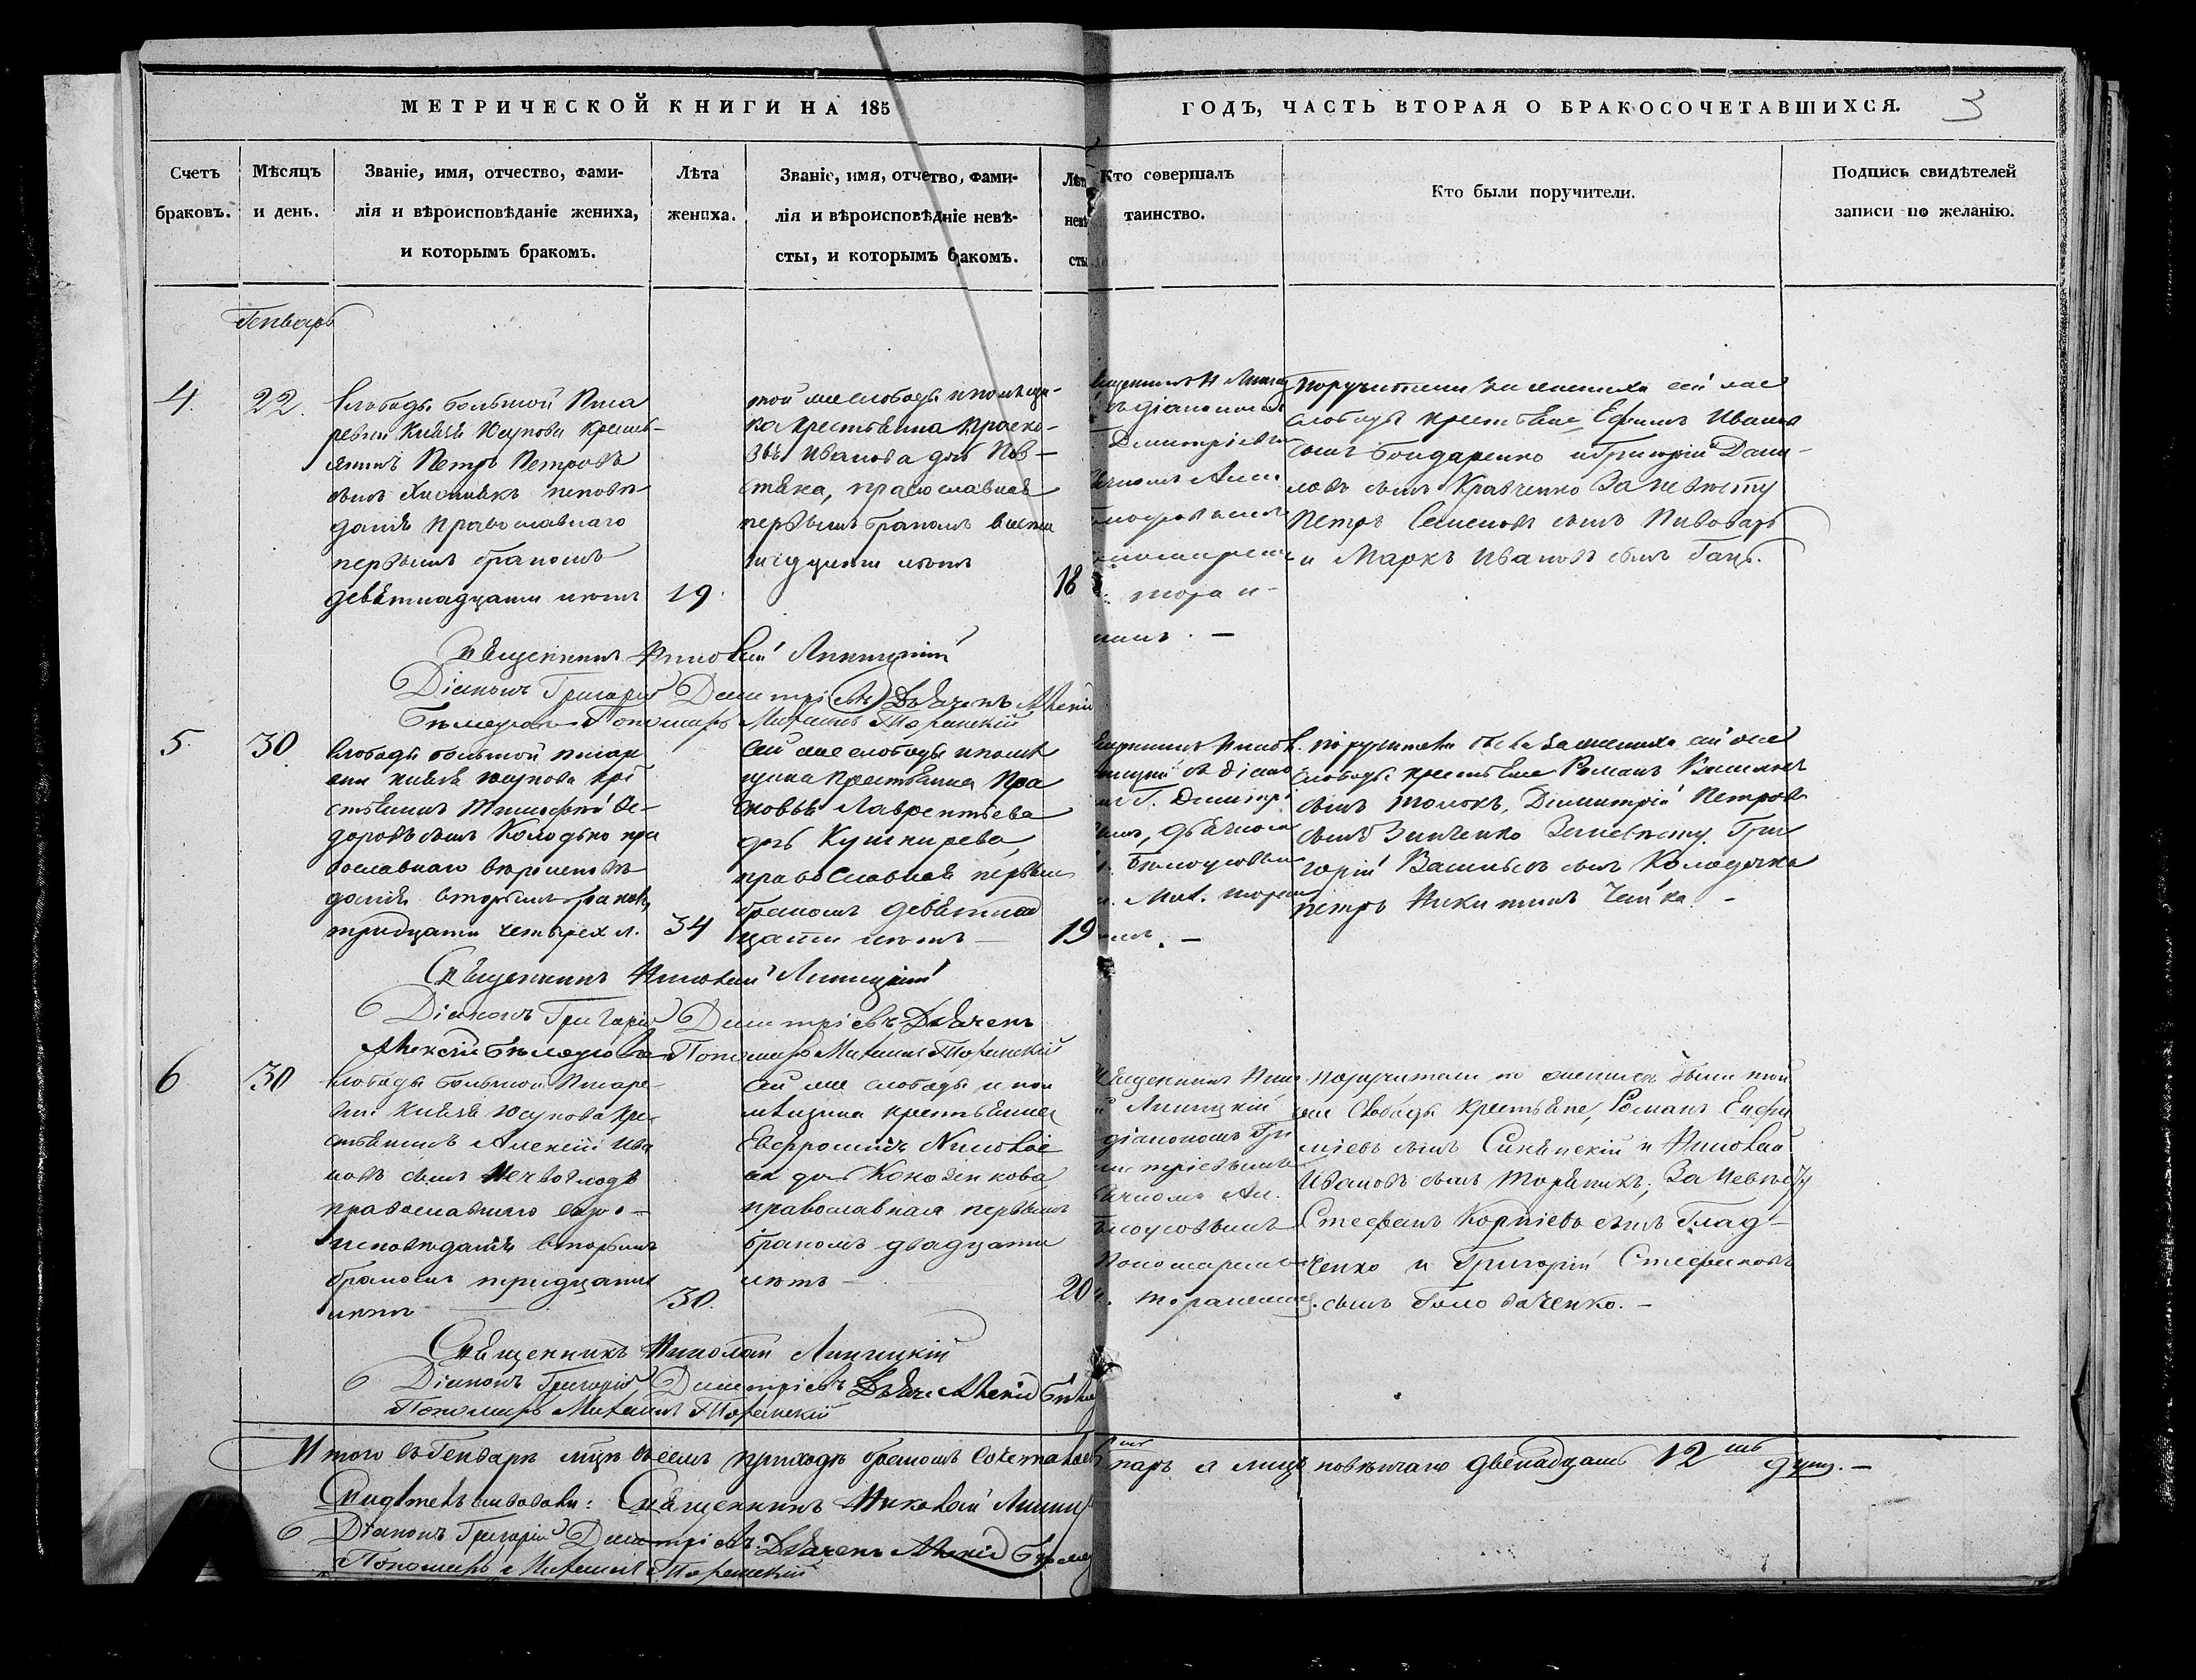 МЕТРИЧЕСКОЙ КНИГИ НА 185
ГОДЪ, ЧАСТЬ ВТОРАЯ О БРАКОСОЧЕТАВШИХСЯ.
3
Счетъ
браковъ.
Мѣсяцъ
и день.
Званіе, имя, отчество, фами-
лія и вѣроисповѣданіе жениха,
и которымъ бракомъ.
Лѣта
жениха.
Званіе, имя, отчетво, фами-
лія и вѣроисповѣдніе невѣ-
сты, и которымъ бакомъ.
Лѣт
невѣ
сты
Кто совершалъ
таинство.
Кто были поручители.
Подпись свидѣтелей
записи по желанію.
Генварь
4.
22.
Слободы большой Писа
ревки Князя Юсупова Кресть-
янинъ Петръ Петровъ
сынъ исповѣ-
данія православнаго
первымъ бракомъ
девятнадцати лѣтъ
19.
той же слободы и помѣщи-
ка крестьянка Праско-
вья Иванова дочь
православная
первымъ бракомъ
лѣтъ
18
Димитріевы
Поручители по женихѣ сей же
слободы крестьяне Ефимъ Ивановъ
сынъ Бондаренко и Григорій Дани-
ловъ сынъ Кравченко За невѣсту
Петръ Семеновъ сынъ Пивоваръ
и Маркъ Ивановъ сынъ Гацъ.
Священникъ Николай Липицкій
Діаконъ Григорій Димитріевъ Дьячекъ Алексій
Бѣлоусовъ Пономарь Михаилъ Торанскій
5.
30.
Слободы большой писар
евки князя юсупова кре
стьянинъ Тимофей Ѳе-
доровъ сынъ Колодько пра
вославнаго вѣроисповѣ
данія вторымъ бракомъ,
тридцати четырех л.
34
Сей же слободы и помѣ
щика Крестьянка Пра
сковья Лаврентьева
дочь Кушнирева,
православная первымъ
бракомъ девятнад
цати лѣтъ —
19
поручители были за жениха сей же
слободы крестьяне Романъ Васильевъ
сынъ Толокъ, Димитрій Петровъ
сынъ Зинченко За невѣсту Гри
горій Васильевъ сынъ Колодочка
петръ Никитинъ Чайка. -
Священникъ Николай Липицкій
Діаконъ Григорій Димитріевъ Дьячекъ
Алексій Бѣлоусовъ Пономарь Михаилъ Торанскій
6
30
Слободы большой Писаре-
вки Князя Юсупова кре-
стьянинъ Алексій Ива
новъ сынъ Нечволодъ
православнаго вѣро-
исповѣданія вторымъ
бракомъ тридцати
лѣтъ
30.
Сей же слободы и пом
ѣщика крестьянка
Евфросинія Николае
ва дочь Коновенкова
православная первымъ
бракомъ двадцати
лѣтъ —
20
Липицкій
діакономъ Гри
Пономаремъ
поручители по женихѣ были той
же слободы крестьяне, Романъ Евфи
міевъ сынъ Синянскій и Николай
Ивановъ сынъ Торяникъ; За Невѣсту
Стефанъ Корніевъ сынъ Глад-
ченко и Григорій Стефановъ
сынъ Головаченко. —
Священникъ Николай Липицкій
Діаконъ Григорій Димитріевъ Дьяче Алексій Бѣло
Пономарь Михаилъ Торанскій
Итого въ Генварѣ мцѣ въ семъ приходѣ бракомъ сочеталось
паръ а лицъ повѣнчано двенадцать 12 ть душ. —
Свидѣтельствовали: Священникъ Николай Липиц
Діаконъ Григорій Димитріевъ. Дьячекъ Алексій Бѣлоу
Пономарь Михаилъ Торанскій